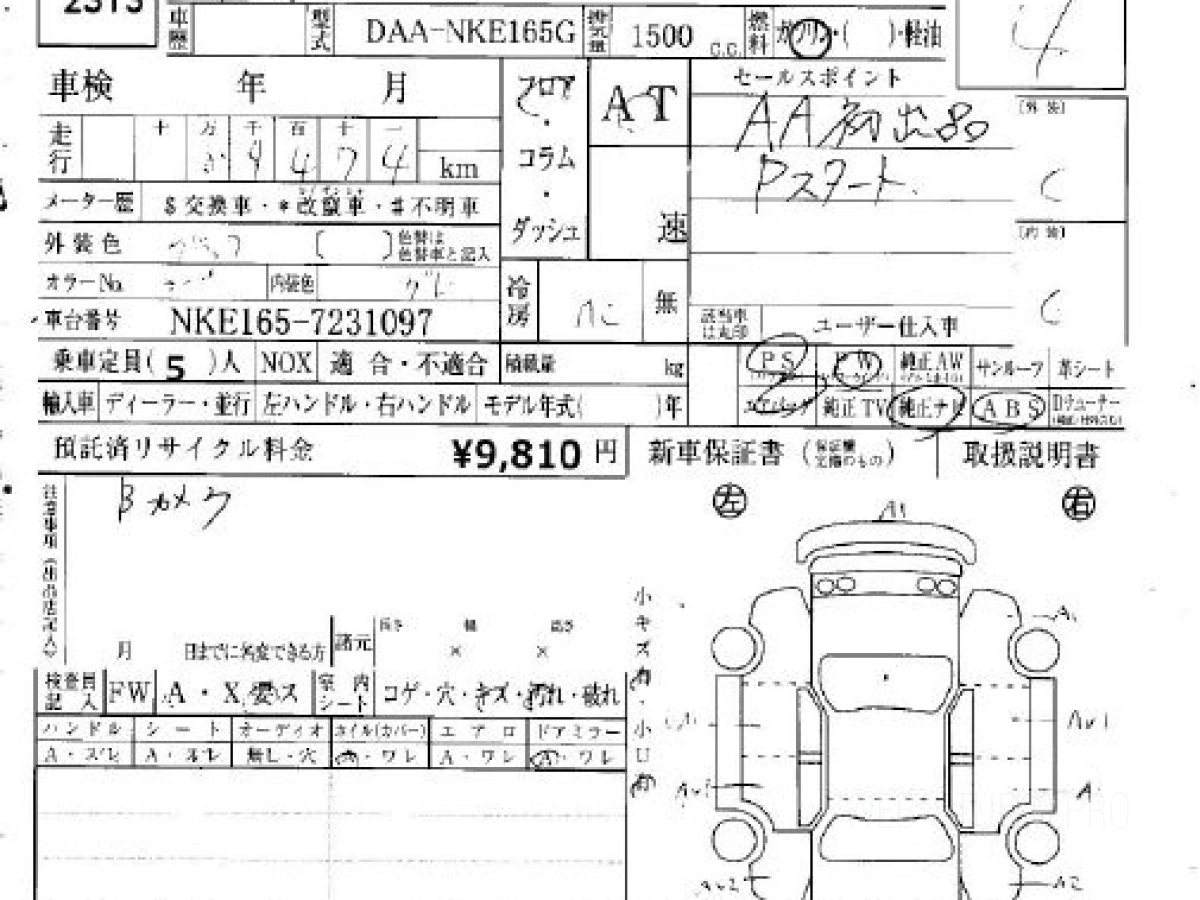 2313
車歴 型式 DAA-NKE165G 排気量 1500 C.C. 燃料 ガソリン・( )・軽油
4
車検 年 月 フロア・コラム・ダッシュ AT 速 セールスポイント
AA初出品
Pスタート
〔外装〕
C
〔内装〕
C
走行 十 万 千 百 十 一
9 4 7 4 km
メーター歴 $交換車・*改竄車・#不明車
外装色 〔 〕色替は色替車と記入
カラーNo. 内装色 グレー
冷房 AC 無
車台番号 NKE165-7231097
該当車は丸印 ユーザー仕入車
乗車定員( 5 )人 NOX 適合・不適合 積載量 kg PS PW 純正AW サンルーフ 革シート
輸入車 ディーラー・並行 左ハンドル・右ハンドル モデル年式( )年 エアバッグ 純正TV 純正ナビ ABS
預託済リサイクル料金 ¥9,810 円 新車保証書 取扱説明書
注意事項(出品店記入)
Bカメラ
左 右
A1
月 日までに名変できる方 諸元 長さ 幅 高さ
× ×
小キズ
小U
検査員記入 FW A・X 室内シート コゲ・穴・キズ・汚れ・破れ
ハンドル シート オーディオ ホイル(カバー) エアロ ドアミラー
A・スレ A・スレ 無し・穴 ワレ A・ワレ A・ワレ
A
AU1
A
AU2
A2